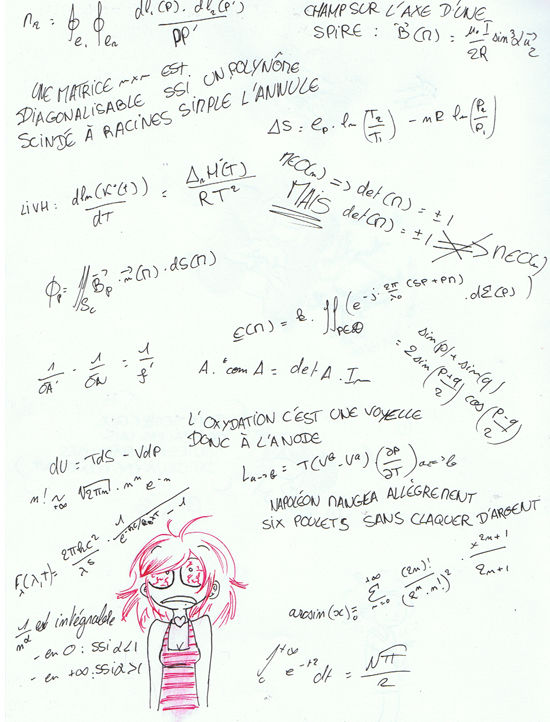 ∮e₁ ∮e₂ dl₁(P) · dl₂(P') / PP'
CHAMP SUR L'AXE D'UNE
SPIRE : B⃗(M) = μ₀ I / 2R sin³α u⃗z
UNE MATRICE n×n EST
DIAGONALISABLE SSI UN POLYNÔME
SCINDÉ À RACINES SIMPLE L'ANNULE
ΔS = Cp · ln(T₂/T₁) - nR ln(P₂/P₁)
d ln(K°(T)) / dT = ΔrH°(T) / RT²
M∈O(n) => det(M) = ±1
MAIS det(M) = ±1 => M∈O(n)
ϕp = ∬Sc B⃗p · n⃗(M) · dS(M)
(e^-j·2π/λ₀ (SP + PM) · dΣ(P))
sin(p) + sin(q)
= 2 sin(p+q / 2) cos(p-q / 2)
1/OA' - 1/OA = 1/f'
A · ᵗcom A = det A · In
L'OXYDATION C'EST UNE VOYELLE
DONC À L'ANODE
dU = TdS - VdP
n! ~+∞ √2πn · nⁿ e⁻ⁿ
NAPOLÉON MANGEA ALLÈGREMENT
SIX POULETS SANS CLAQUER D'ARGENT
arcsin(x) = Σ n=0 +∞ (2n)! / (2ⁿ · n!)² · x²ⁿ⁺¹ / 2n+1
1/n^α est intégrable
- en 0 : SSI α<1
- en +∞ : SSI α>1
∫ +∞ e^-t² dt = √π / 2